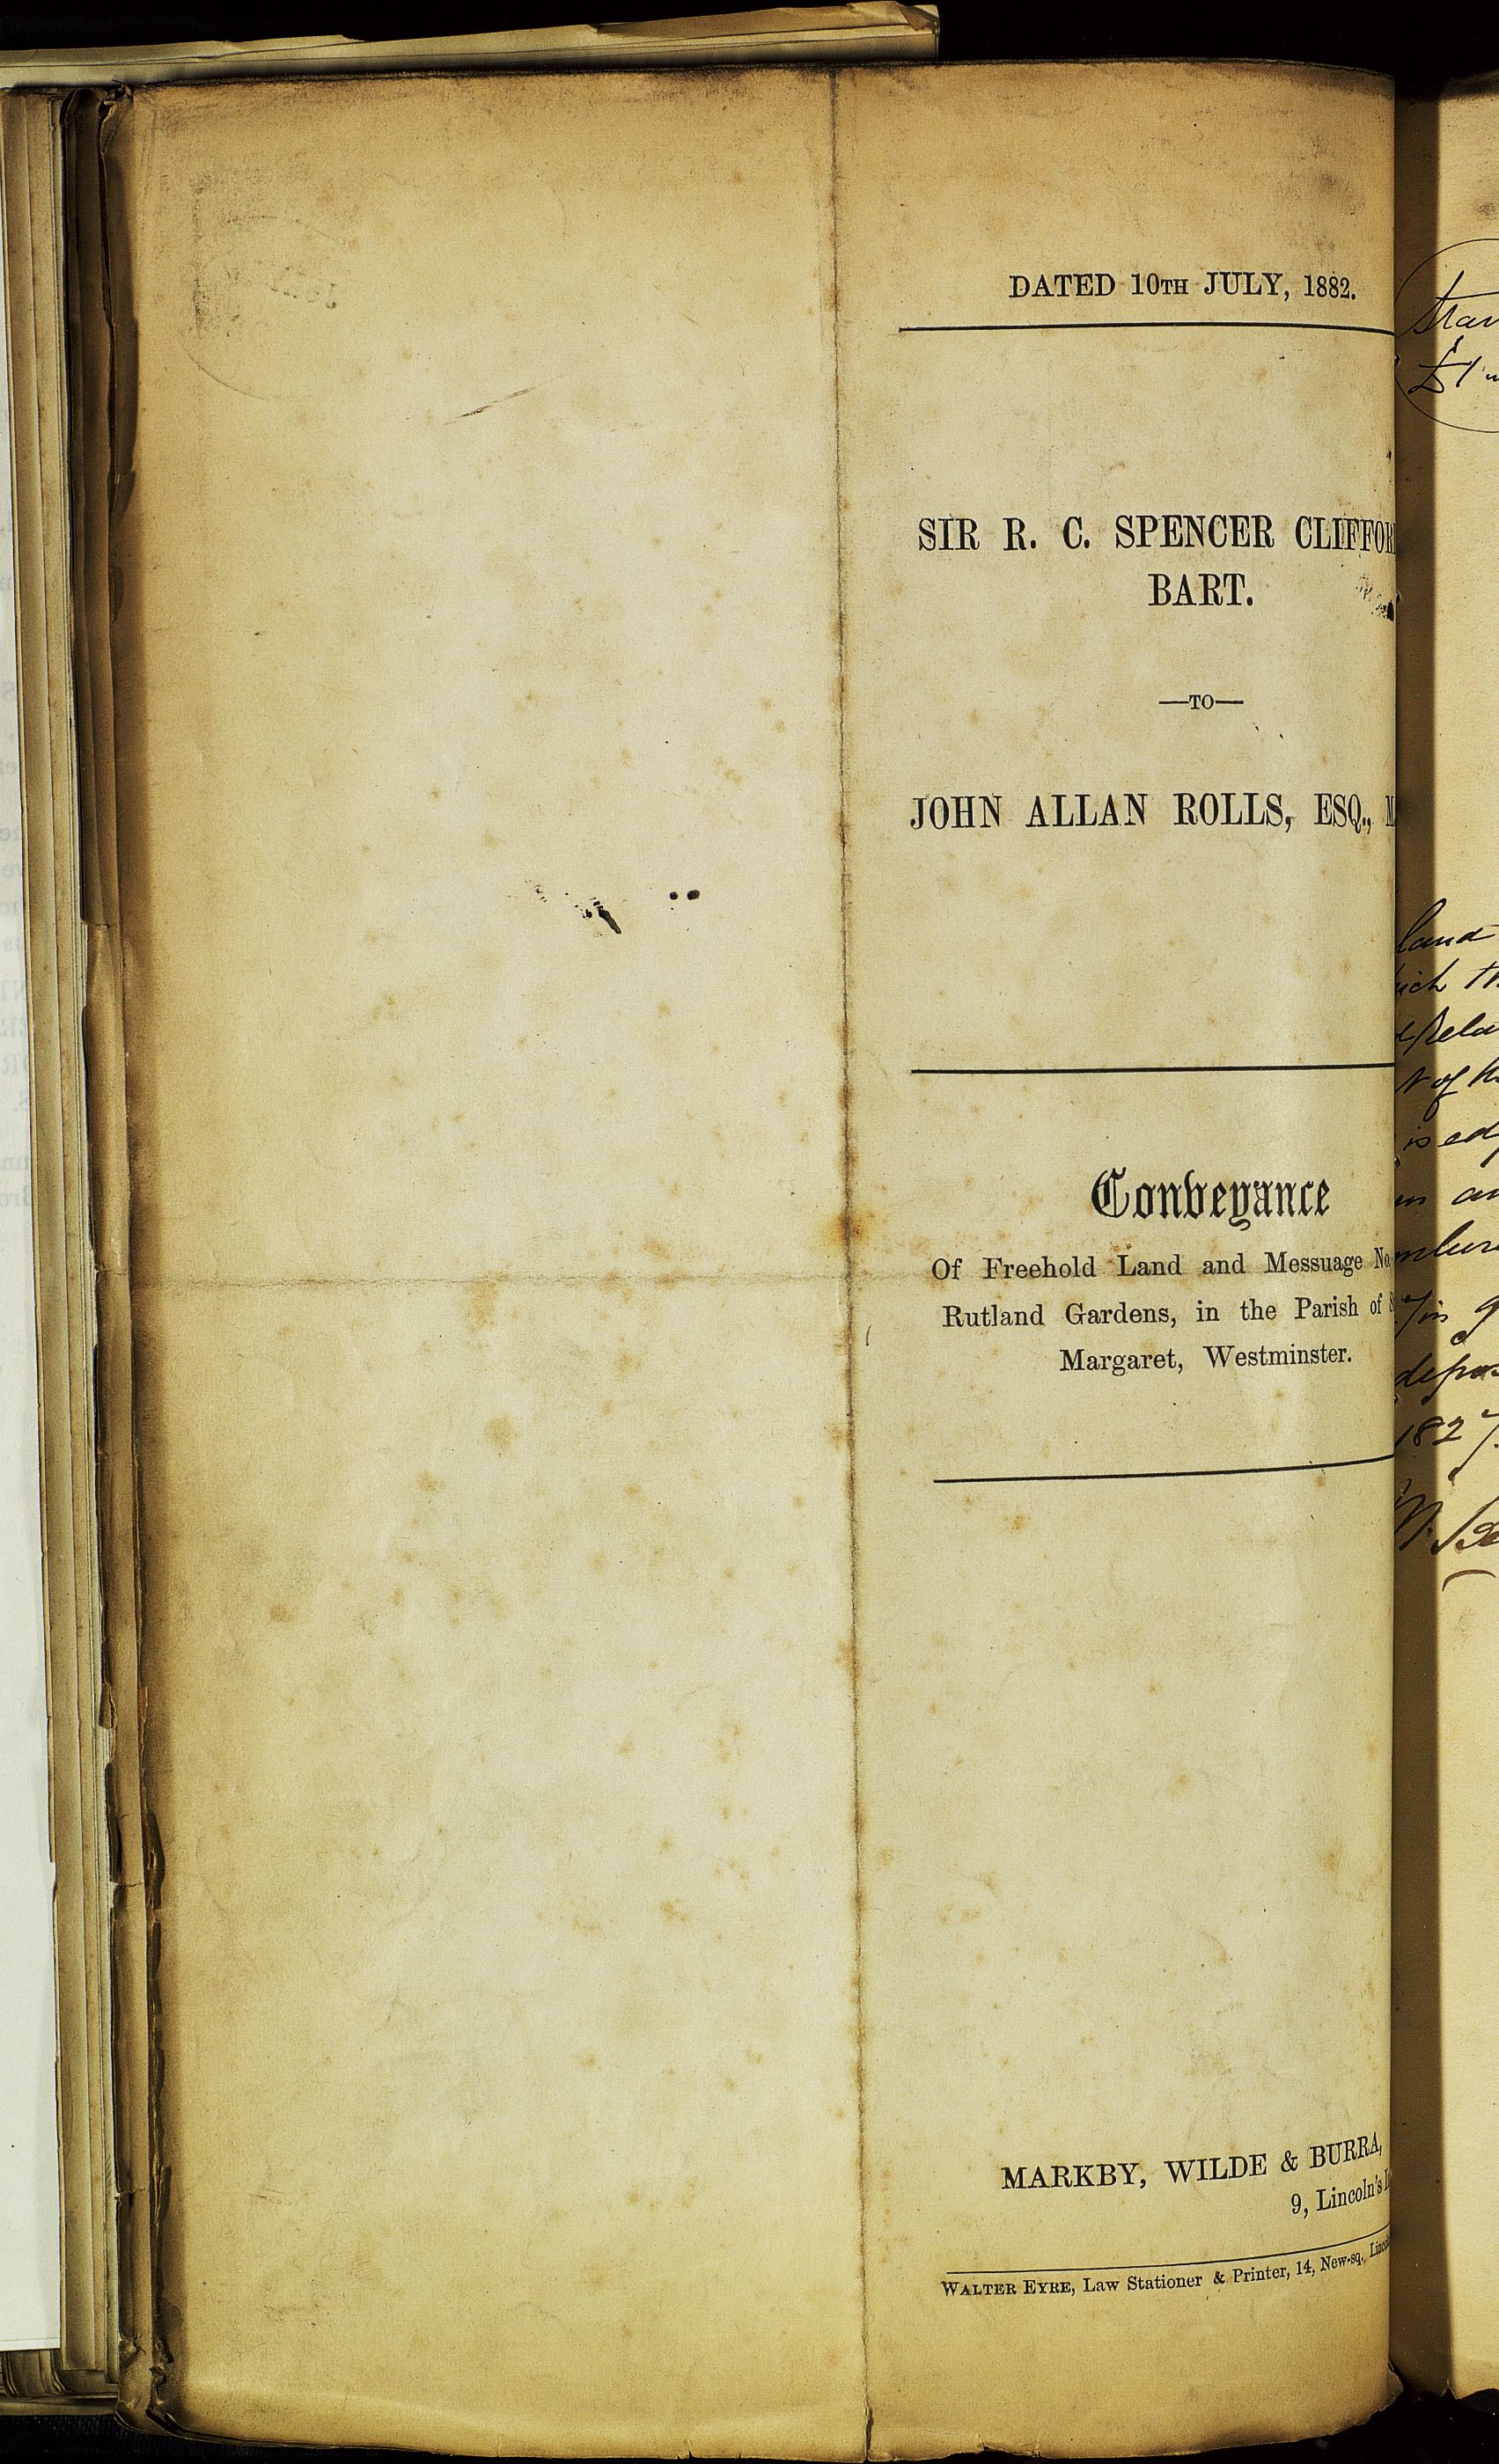 DATED 10TH JULY, 1882.
SIR R. C. SPENCER CLIFFOR
BART.
—TO—
JOHN ALLAN ROLLS, ESQ., M
Conveyance
Of Freehold Land and Messuage No.
Rutland Gardens, in the Parish of S
Margaret, Westminster.
MARKBY, WILDE & BURRA,
9, Lincoln's I
WALTER EYRE, Law Stationer & Printer, 14, New-sq., Linco
£1
land
depos
1827.